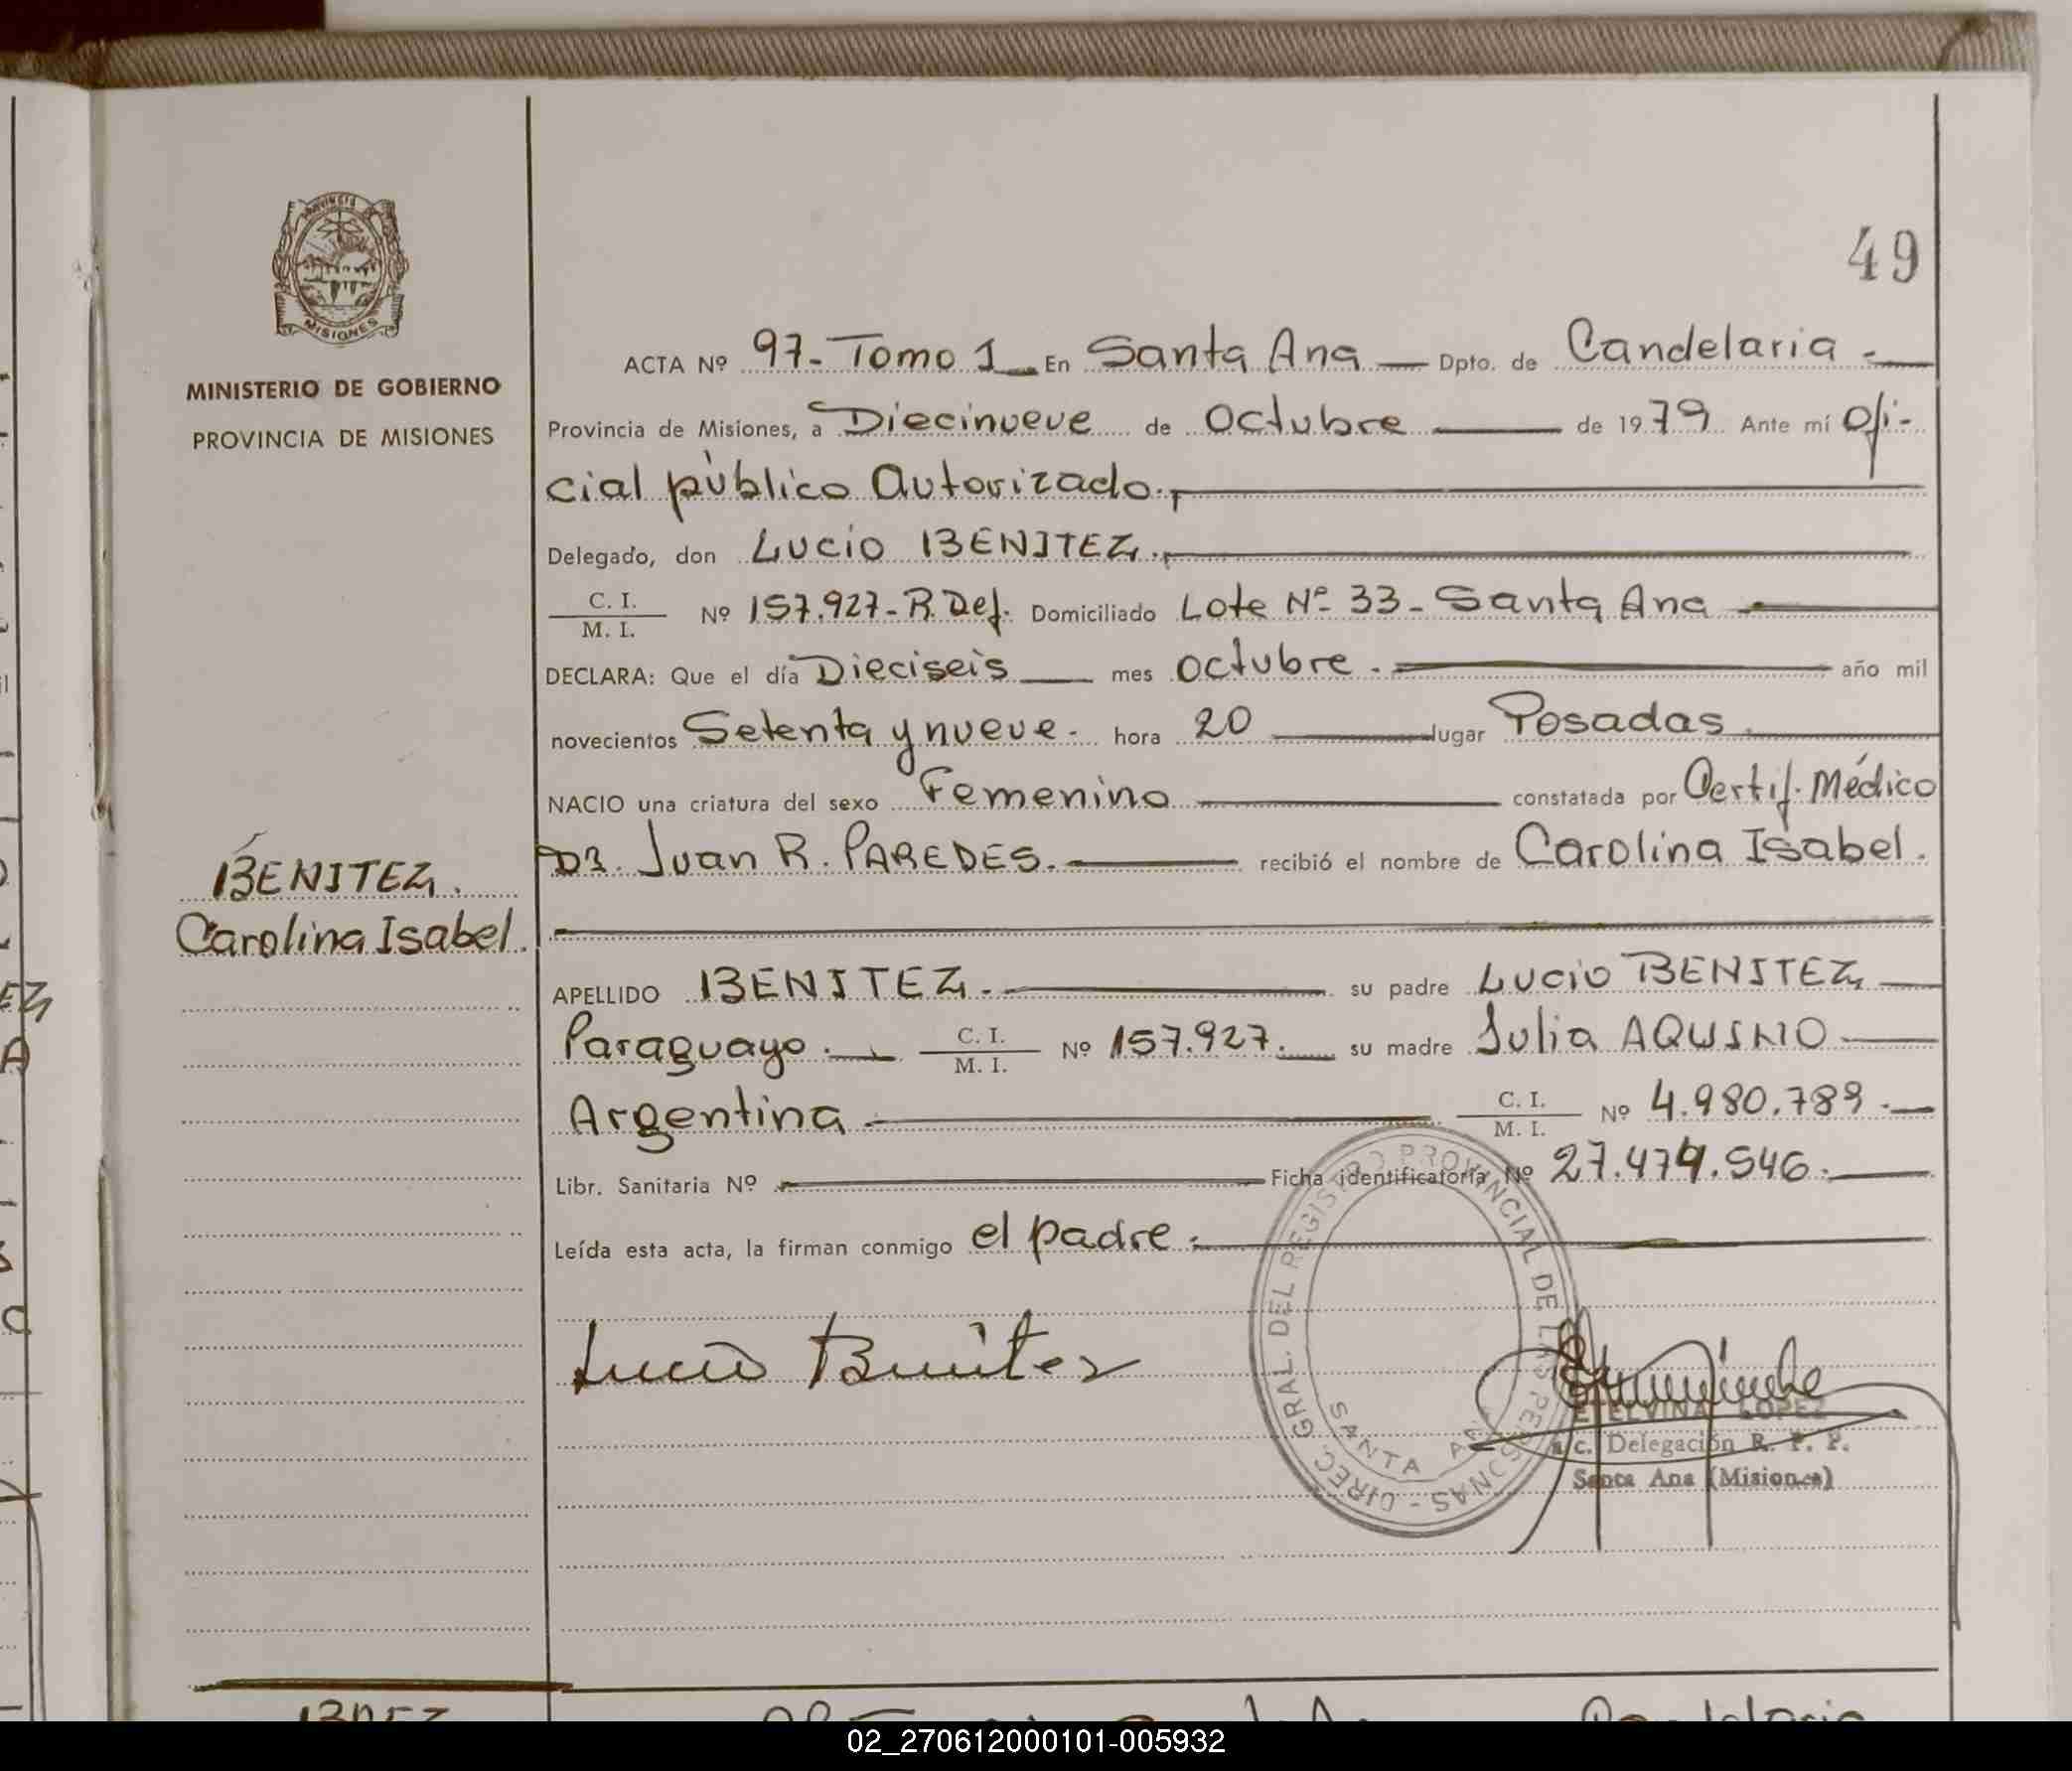 49
MINISTERIO DE GOBIERNO
PROVINCIA DE MISIONES
BENITEZ.
Carolina Isabel.
ACTA Nº 97- Tomo 1 En Santa Ana Dpto. de Candelaria
Provincia de Misiones, a Diecinueve de Octubre de 1979 Ante mí Ofi-
cial público Autorizado.
Delegado, don Lucio BENITEZ.
C. I.
M. I. Nº 157.927-R.Def. Domiciliado Lote Nº 33- Santa Ana
DECLARA: Que el día Dieciseis mes octubre. año mil
novecientos Setenta y nueve. hora 20 lugar Posadas.
NACIO una criatura del sexo Femenino constatada por Certif. Médico
Dr. Juan R. PAREDES. recibió el nombre de Carolina Isabel.
APELLIDO BENITEZ. su padre Lucio BENITEZ
Paraguayo. C. I.
M. I. Nº 157.927. su madre Julia AQUINO
Argentina C. I.
M. I. Nº 4.980.789.
Libr. Sanitaria Nº Ficha identificatoria Nº 27.474.546.
Leída esta acta, la firman conmigo el padre.
Lucio Benitez
DIREC. GRAL. DEL REGISTRO PROVINCIAL DE LAS PERSONAS -
SANTA ANA
ETELVINA LOPEZ
a/c. Delegación R. P. P.
Santa Ana (Misiones)
02_270612000101-005932